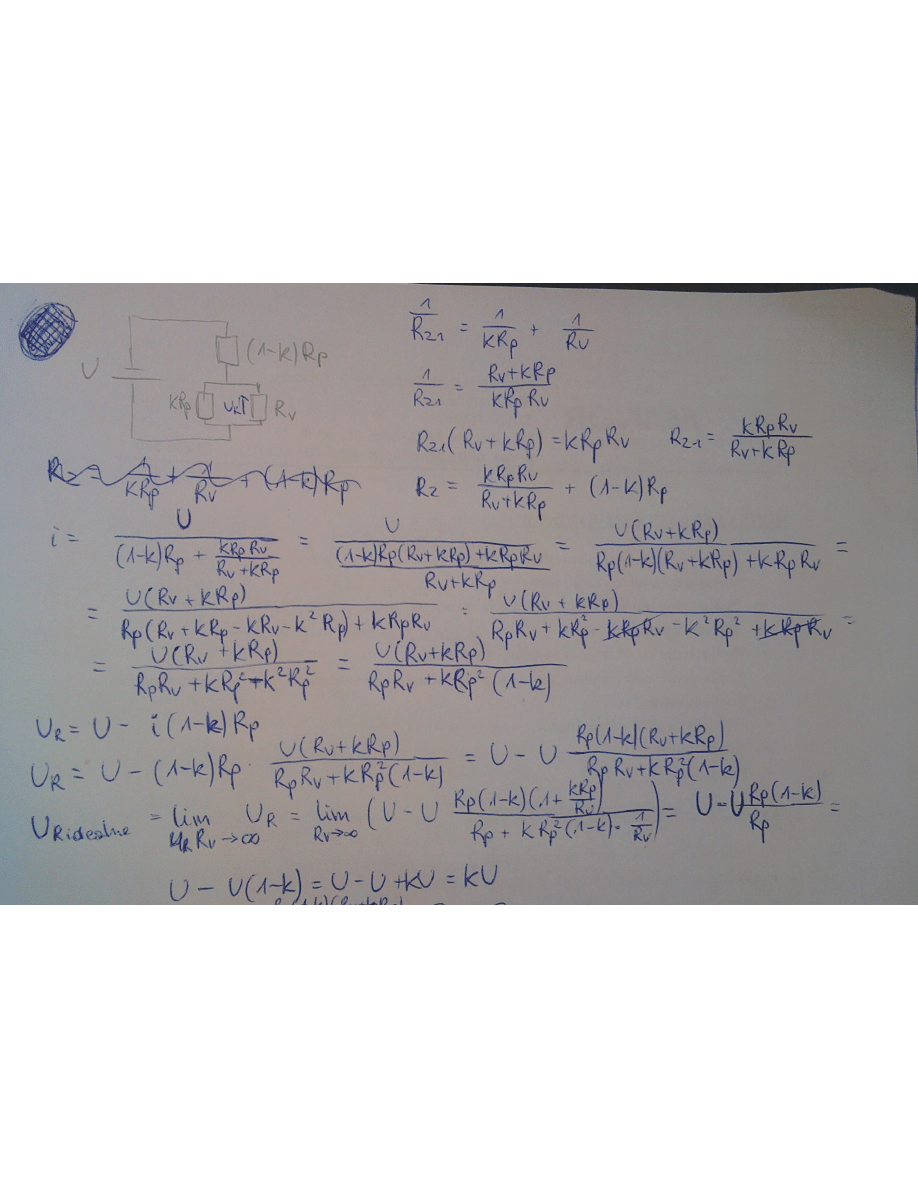 1/R21 = 1/(kRp) + 1/Rv
U (1-k)Rp
1/R21 = (Rv+kRp)/(kRp Rv)
kRp UR↑ Rv
R21(Rv+kRp) = kRpRv R2-1 = kRpRv/(Rv+kRp)
R2 = 1/(kRp) + 1/Rv + (1-k)Rp
R2 = kRpRv/(Rv+kRp) + (1-k)Rp
i = U/((1-k)Rp + kRpRv/(Rv+kRp)) = U/(((1-k)Rp(Rv+kRp)+kRpRv)/(Rv+kRp)) = U(Rv+kRp)/(Rp(1-k)(Rv+kRp)+kRpRv) =
= U(Rv+kRp)/(Rp(Rv+kRp-kRv-k²Rp)+kRpRv) = U(Rv+kRp)/(RpRv+kRp²-kRpRv-k²Rp²+kRpRv) =
= U(Rv+kRp)/(RpRv+kRp²-k²Rp²) = U(Rv+kRp)/(RpRv+kRp²(1-k))
UR = U - i(1-k)Rp
UR = U - (1-k)Rp · U(Rv+kRp)/(RpRv+kRp²(1-k)) = U - U Rp(1-k)(Rv+kRp)/(RpRv+kRp²(1-k))
= lim Rv→∞ UR = lim Rv→∞ (U - U Rp(1-k)(1+kRp/Rv)/(Rp+kRp²(1-k)·1/Rv)) = U-U Rp(1-k)/Rp =
U - U(1-k) = U-U+kU = kU